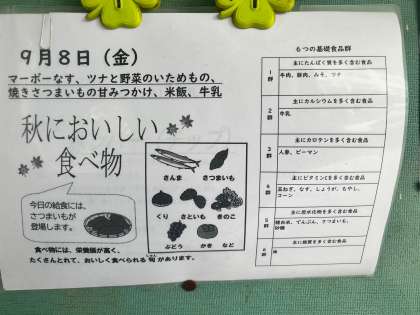 9月8日(金)
マーボーなす、ツナと野菜のいためもの、
焼きさつまいもの甘みつかけ、米飯、牛乳
秋においしい
食べ物
今日の給食には、
さつまいもが
登場します。
さんま さつまいも
くり さといも きのこ
ぶどう かき など
食べ物には、栄養価が高く、
たくさんとれて、おいしく食べられる旬があります。
6つの基礎食品群
1群
主にたんぱく質を多く含む食品
牛肉、豚肉、みそ、ツナ
2群
主にカルシウムを多く含む食品
牛乳
3群
主にカロテンを多く含む食品
人参、ピーマン
4群
主にビタミンCを多く含む食品
玉ねぎ、なす、しょうが、もやし、
コーン
5群
主に炭水化物を多く含む食品
精白米、でんぷん、さつまいも、
砂糖
6群
主に脂質を多く含む食品
油